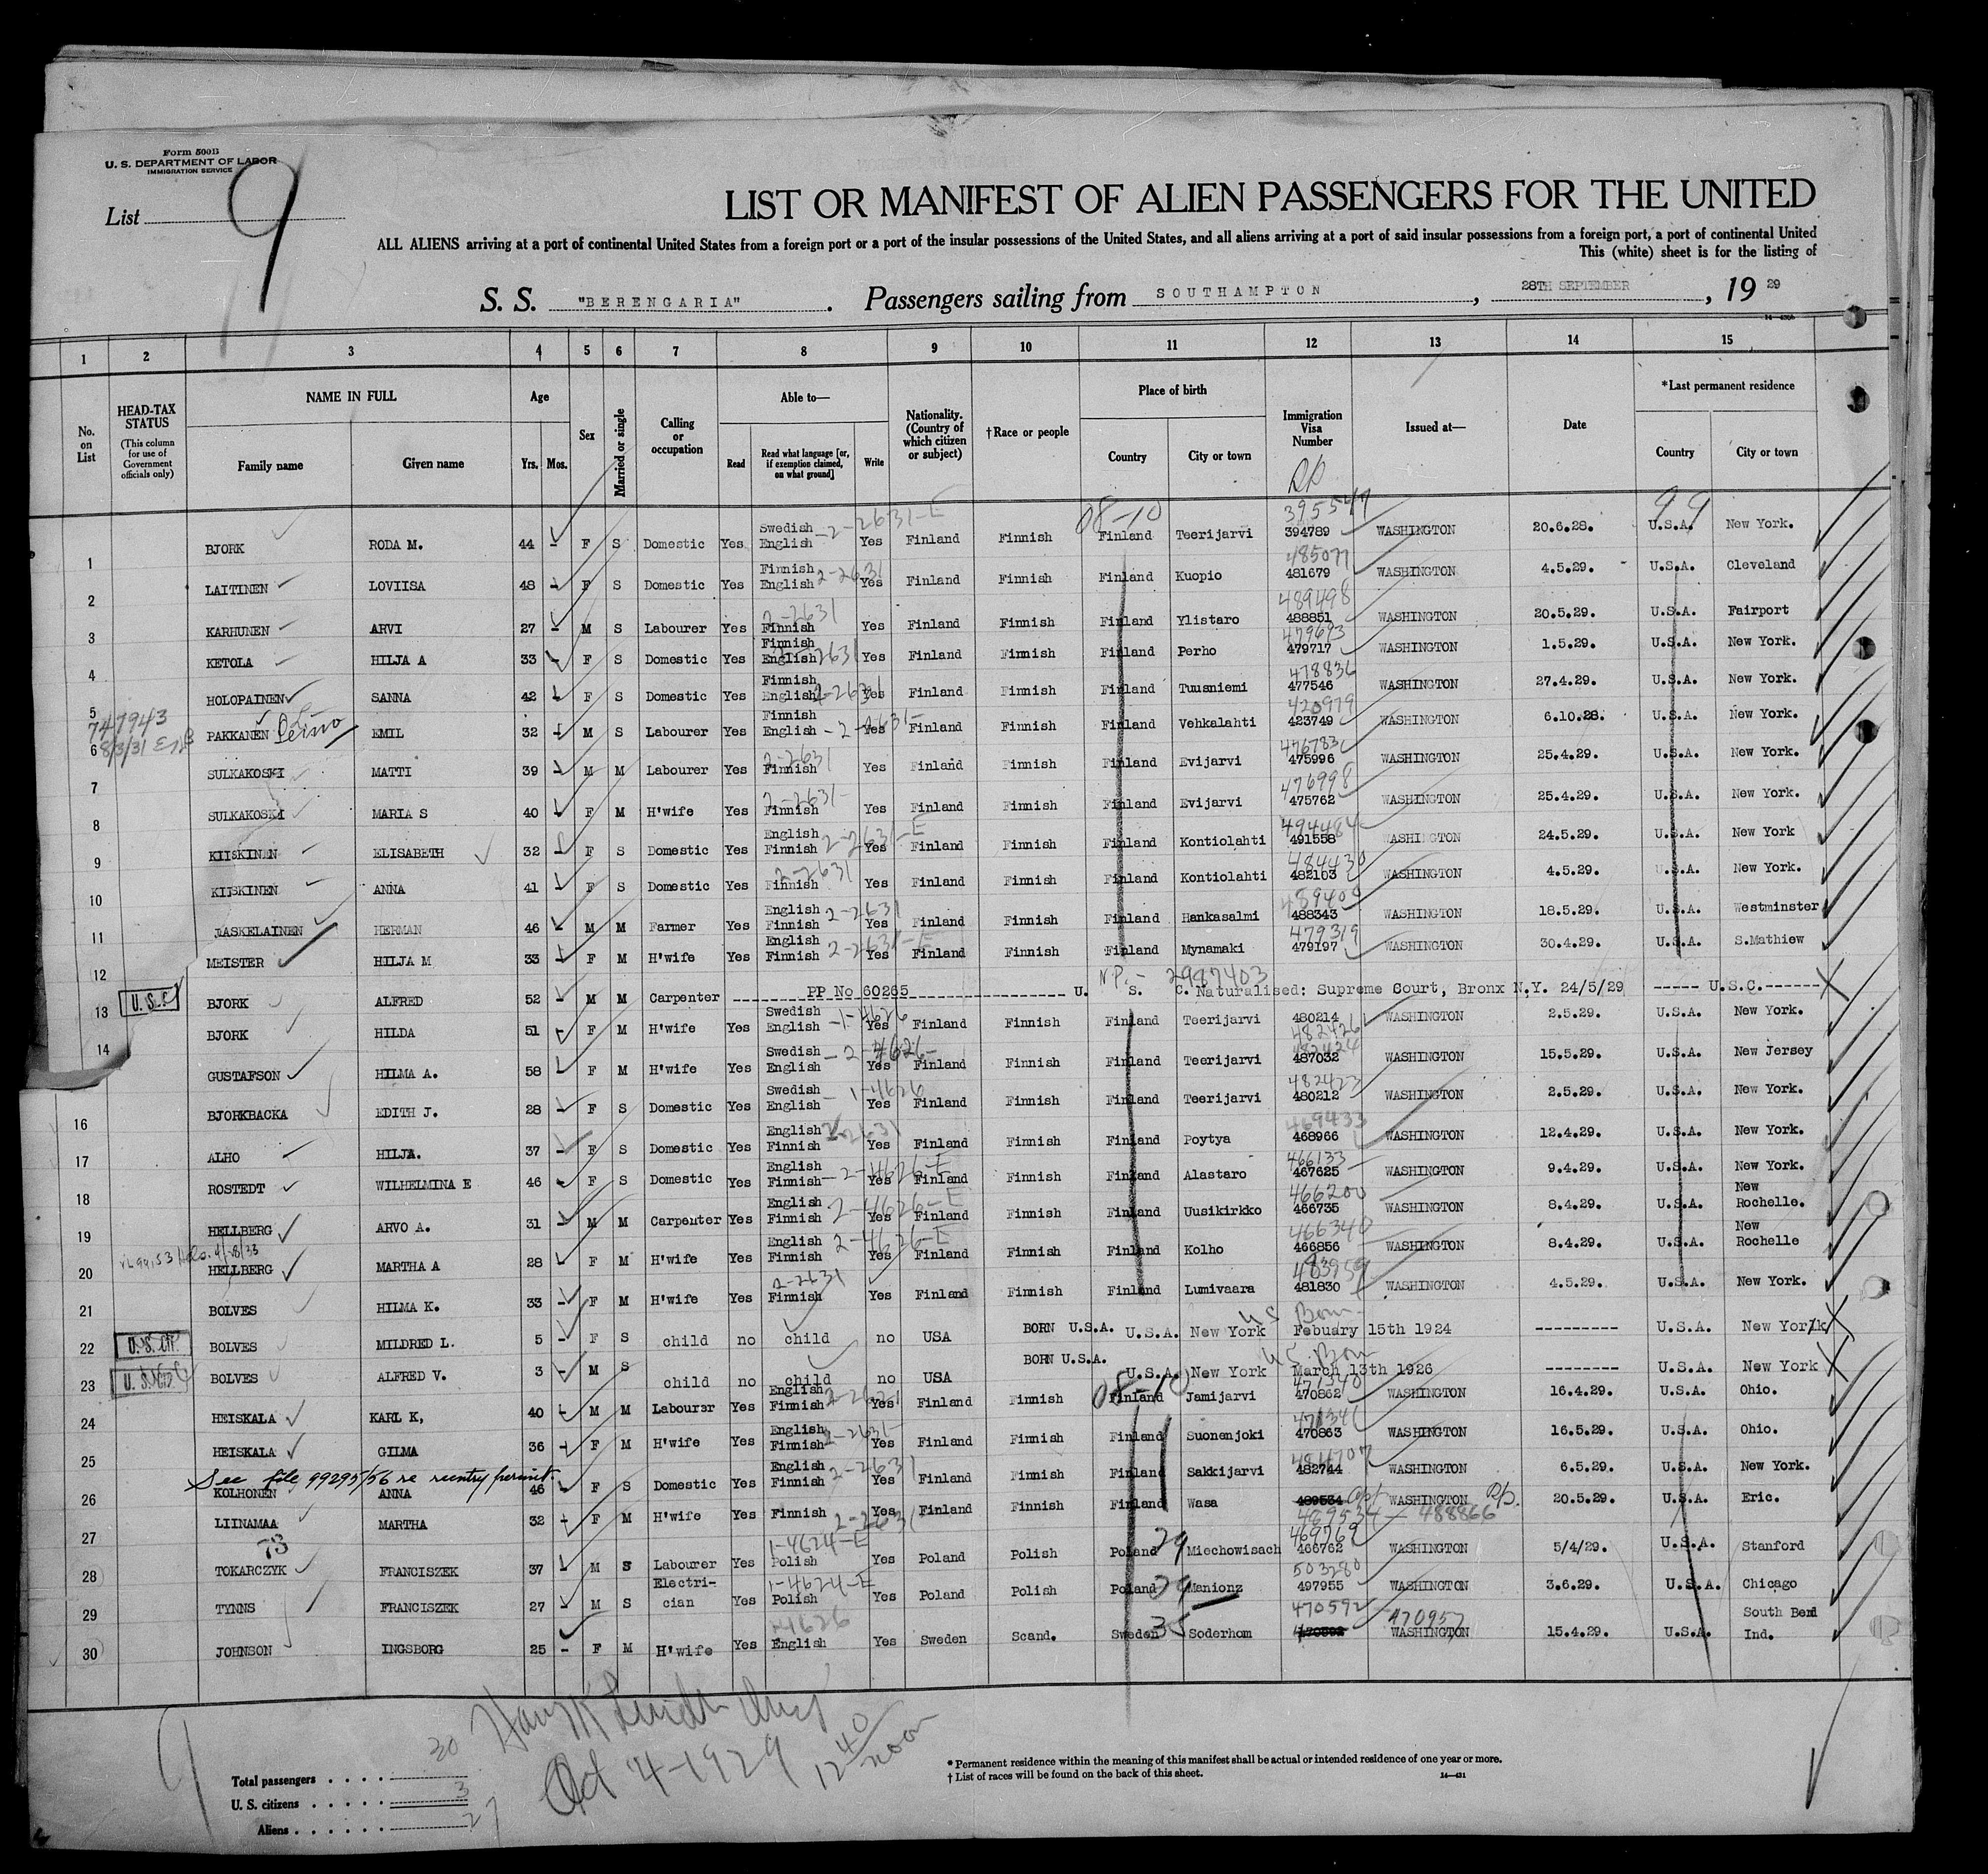 Form 500B
U. S. DEPARTMENT OF LABOR
IMMIGRATION SERVICE
List 9
LIST OR MANIFEST OF ALIEN PASSENGERS FOR THE UNITED
ALL ALIENS arriving at a port of continental United States from a foreign port or a port of the insular possessions of the United States, and all aliens arriving at a port of said insular possessions from a foreign port, a port of continental United
This (white) sheet is for the listing of
S. S. "BERENGARIA". Passengers sailing from SOUTHAMPTON, 28TH SEPTEMBER, 19 29
1 2 3 4 5 6 7 8 9 10 11 12 13 14 15
No. on List
HEAD-TAX STATUS (This column for use of Government officials only)
NAME IN FULL Family name Given name
Age Yrs. Mos.
Sex
Married or single
Calling or occupation
Able to— Read Read what language [or, if exemption claimed, on what ground] Write
Nationality. (Country of which citizen or subject)
†Race or people
Place of birth Country City or town
Immigration Visa Number
Issued at—
Date
*Last permanent residence Country City or town
08-10 99
1 BJORK RODA M. 44 - F S Domestic Yes Swedish English 2-2631-E Yes Finland Finnish Finland Teerijarvi 395547 394789 WASHINGTON 20.6.28. U.S.A. New York.
2 LAITINEN LOVIISA 48 - F S Domestic Yes Finnish English 2-2631 Yes Finland Finnish Finland Kuopio 485077 481679 WASHINGTON 4.5.29. U.S.A. Cleveland
3 KARHUNEN ARVI 27 - M S Labourer Yes 2-2631 Finnish Yes Finland Finnish Finland Ylistaro 489498 488851 WASHINGTON 20.5.29. U.S.A. Fairport
4 KETOLA HILJA A 33 - F S Domestic Yes Finnish English 2-2631 Yes Finland Finnish Finland Perho 479693 479717 WASHINGTON 1.5.29. U.S.A. New York.
5 HOLOPAINEN SANNA 42 - F S Domestic Yes Finnish English 2-2631 Yes Finland Finnish Finland Tuusniemi 478836 477546 WASHINGTON 27.4.29. U.S.A. New York.
747943
8/3/31
6 PAKKANEN EMIL 32 - M S Labourer Yes Finnish English - 2-2631- Yes Finland Finnish Finland Vehkalahti 420979 423749 WASHINGTON 6.10.28. U.S.A. New York.
7 SULKAKOSKI MATTI 39 - M M Labourer Yes 2-2631 Finnish Yes Finland Finnish Finland Evijarvi 475996 WASHINGTON 25.4.29. U.S.A. New York.
8 SULKAKOSKI MARIA S 40 - F M H'wife Yes 2-2631- Finnish Yes Finland Finnish Finland Evijarvi 476998 475762 WASHINGTON 25.4.29. U.S.A. New York.
9 KIISKINEN ELISABETH 32 - F S Domestic Yes English Finnish 2-2631-E Yes Finland Finnish Finland Kontiolahti 494484 491558 WASHINGTON 24.5.29. U.S.A. New York
10 KIISKINEN ANNA 41 - F S Domestic Yes 2-2631 Finnish Yes Finland Finnish Finland Kontiolahti 484430 482103 WASHINGTON 4.5.29. U.S.A. New York.
11 LASKELAINEN HERMAN 46 - M M Farmer Yes English Finnish 2-2631 Yes Finland Finnish Finland Hankasalmi 488343 WASHINGTON 18.5.29. U.S.A. Westminster
12 MEISTER HILJA M 33 - F M H'wife Yes English Finnish 2-2631-E Yes Finland Finnish Finland Mynamaki 479319 479197 WASHINGTON 30.4.29. U.S.A. S.Mathiew
N.P. - 2987403
13 U.S.C BJORK ALFRED 52 - M M Carpenter PP No 60265 U. S. C. Naturalised: Supreme Court, Bronx N.Y. 24/5/29 ----- U.S.C.-------
14 BJORK HILDA 51 - F M H'wife Yes Swedish English -1-4626 Yes Finland Finnish Finland Teerijarvi 480214 482426 WASHINGTON 2.5.29. U.S.A. New York.
GUSTAFSON HILMA A. 58 - F M H'wife Yes Swedish English -2-4626- Yes Finland Finnish Finland Teerijarvi 482424 487032 WASHINGTON 15.5.29. U.S.A. New Jersey
16 BJORKBACKA EDITH J. 28 - F S Domestic Yes Swedish English - 1-4626 Yes Finland Finnish Finland Teerijarvi 482423 480212 WASHINGTON 2.5.29. U.S.A. New York.
17 ALHO HILJA. 37 - F S Domestic Yes English Finnish 2-2631 Yes Finland Finnish Finland Poytya 469433 468966 WASHINGTON 12.4.29. U.S.A. New York.
18 ROSTEDT WILHELMINA E 46 - F S Domestic Yes English Finnish -2-4626-E Yes Finland Finnish Finland Alastaro 466133 467625 WASHINGTON 9.4.29. U.S.A. New York.
19 HELLBERG ARVO A. 31 - M M Carpenter Yes English Finnish 2-4626-E Yes Finland Finnish Finland Uusikirkko 466200 466735 WASHINGTON 8.4.29. U.S.A. New Rochelle.
20 HELLBERG MARTHA A 28 - F M H'wife Yes English Finnish 2-4626-E Yes Finland Finnish Finland Kolho 466340 466856 WASHINGTON 8.4.29. U.S.A. New Rochelle
21 BOLVES HILMA K. 33 - F M H'wife Yes 2-2631 Finnish Yes Finland Finnish Finland Lumivaara 483959 481830 WASHINGTON 4.5.29. U.S.A. New York.
US Born
22 U.S. CIT. BOLVES MILDRED L. 5 - F S child no child no USA BORN U.S.A. U.S.A. New York Febuary 15th 1924 --------- U.S.A. New York
US Born
23 U.S. CIT. BOLVES ALFRED V. 3 - M S child no child no USA BORN U.S.A. U.S.A. New York March 13th 1926 -------- U.S.A. New York
08-10
24 HEISKALA KARL K, 40 - M M Labourer Yes English Finnish 2-2631 Yes Finland Finnish Finland Jamijarvi 471340 470862 WASHINGTON 16.4.29. U.S.A. Ohio.
25 HEISKALA GILMA 36 - F M H'wife Yes English Finnish 2-2631- Yes Finland Finnish Finland Suonenjoki 471341 470863 WASHINGTON 16.5.29. U.S.A. Ohio.
See file 99295/56 re reentry permit
26 KOLHONEN ANNA 46 - F S Domestic Yes English Finnish 2-2631 Yes Finland Finnish Finland Sakkijarvi 484707 482744 WASHINGTON 6.5.29. U.S.A. New York.
27 LIINAMAA MARTHA 32 - F M H'wife Yes Finnish 2-2631 Yes Finland Finnish Finland Wasa 489534 WASHINGTON 20.5.29. U.S.A. Eric.
489534 - 488866
73
28 TOKARCZYK FRANCISZEK 37 - M S Labourer Yes 1-4624-E Polish Yes Poland Polish Poland 29 Miechowisach 469769 466762 WASHINGTON 5/4/29. U.S.A. Stanford
29 TYNNS FRANCISZEK 27 - M S Electri-cian Yes 1-4624-E Polish Yes Poland Polish Poland 29 Manionz 503280 497955 WASHINGTON 3.6.29. U.S.A. Chicago
30 JOHNSON INGSBORG 25 - F M H'wife Yes English Yes Sweden Scand. Sweden 35 Soderhom 470592 470957 WASHINGTON 15.4.29. U.S.A. South Bend Ind.
Oct 4-1929 12 40 noon
9
Total passengers . . . . 30
U. S. citizens . . . . . 3
Aliens . . . . . . 27
* Permanent residence within the meaning of this manifest shall be actual or intended residence of one year or more.
† List of races will be found on the back of this sheet.
14—431